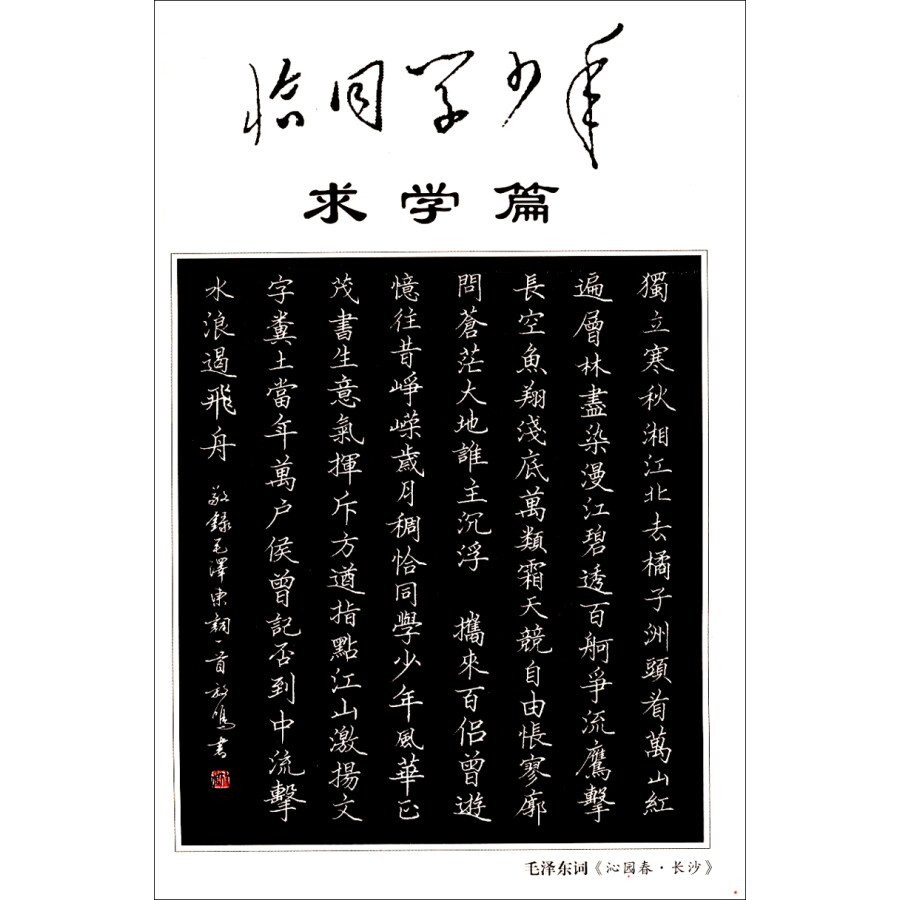 恰同学少年
求学篇
獨立寒秋湘江北去橘子洲頭看萬山紅
遍層林盡染漫江碧透百舸爭流鷹擊
長空魚翔淺底萬類霜天競自由悵寥廓
問蒼茫大地誰主沉浮 攜來百侶曾遊
憶往昔崢嶸歲月稠恰同學少年風華正
茂書生意氣揮斥方遒指點江山激揚文
字糞土當年萬户侯曾記否到中流擊
水浪遏飛舟 敬錄毛澤東詞一首 書
毛泽东词《沁园春·长沙》